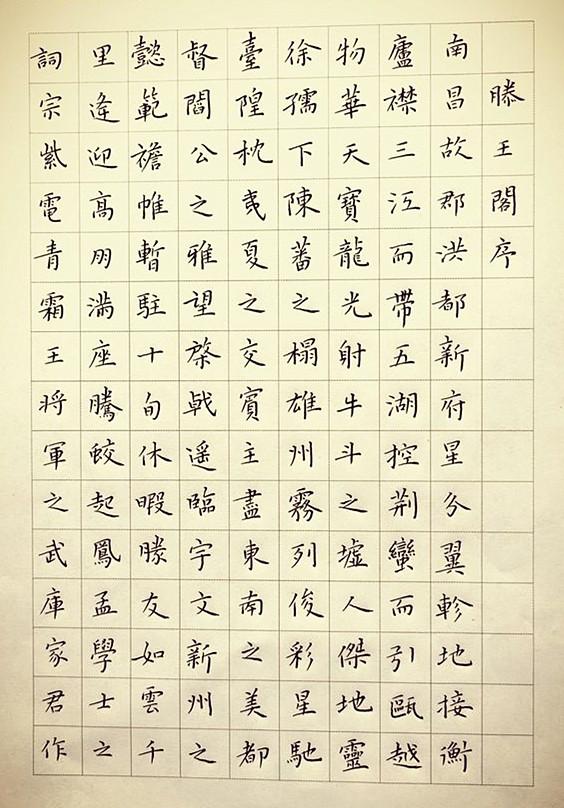 滕王閣序
南昌故郡洪都新府星分翼軫地接衡
廬襟三江而帶五湖控荆蠻而引甌越
物華天寶龍光射牛斗之墟人傑地靈
徐孺下陳蕃之榻雄州霧列俊彩星馳
臺隍枕夷夏之交賓主盡東南之美都
督閻公之雅望棨戟遥臨宇文新州之
懿範襜帷暫駐十旬休暇勝友如雲千
里逢迎高朋滿座騰蛟起鳳孟學士之
詞宗紫電青霜王將軍之武庫家君作